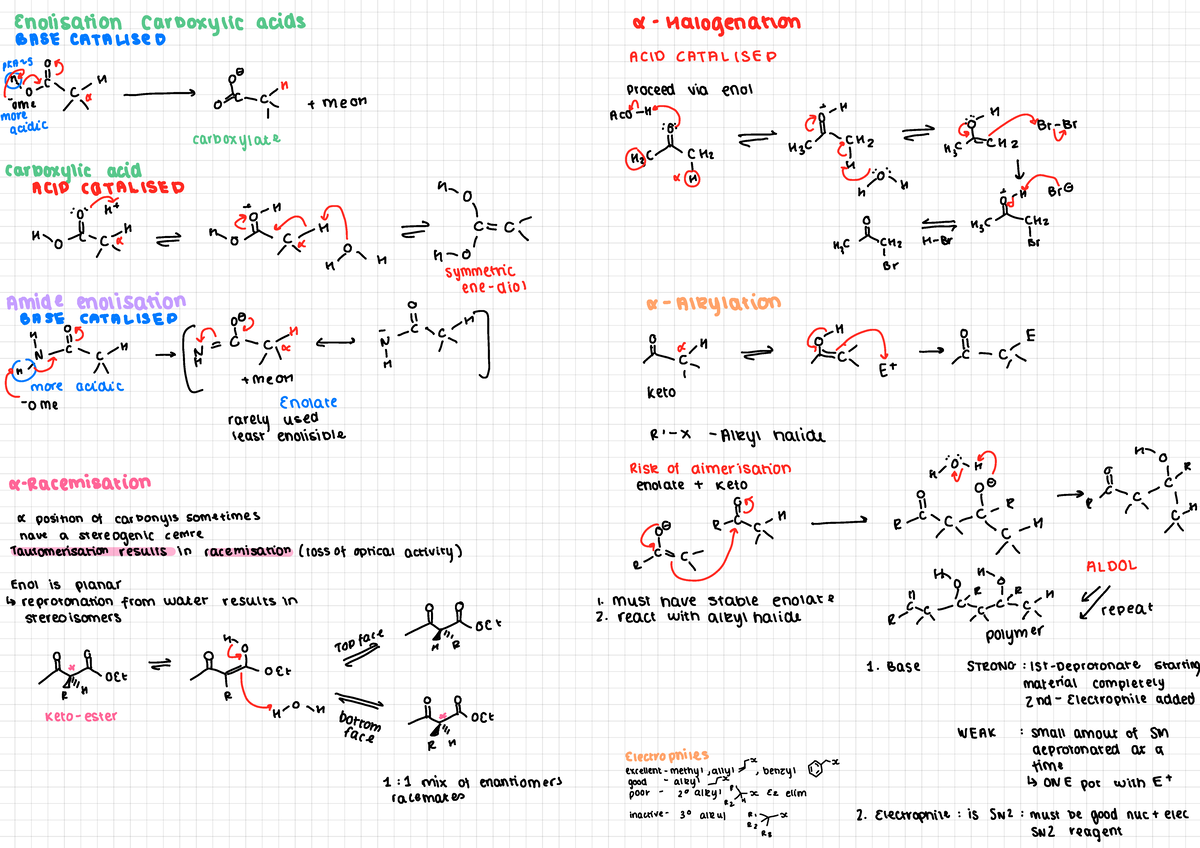 Enolisation Carboxylic acids
BASE CATALISED
pKa~5
H
O
C
O
C
H
α
-OMe
more
acidic
O⊖
O
C
C
H
+ MeOH
carboxylate
Carboxylic acid
ACID CATALISED
H+
H-O
O
C
C
H
α
O-H
H-O
C
C
H
α
H O H
H-O
C=C
H-O
symmetric
ene-diol
Amide enolisation
BASE CATALISED
H
N
H
O
C
C
H
more acidic
-OMe
N
H
C
O⊖
C
H
α
+MeOH
O
C
C
H
N
H
Enolate
rarely used
least enolisible
α-Racemisation
α position of carbonyls sometimes
have a stereogenic centre
Tautomerisation results in racemisation (loss of optical activity)
Enol is planar
↳ reprotonation from water results in
stereoisomers
O O
OEt
R H
α
Keto-ester
H O
O
OEt
R
H O H
TOP face
bottom
face
O O
OEt
H R
O O
OEt
α
R H
1:1 mix of enantiomers
racemates
α-Halogenation
ACID CATALISED
Proceed via enol
AcO-H
O
H3C
CH2
α H
O-H
H3C
CH2
H
H O H
O H
H3C
CH2
Br-Br
O H
Br⊖
H3C
CH2
Br
H-Br
O
H3C
CH2
Br
α-Alkylation
O
C
α
H
Keto
O H
C
E+
O
C
E
R'-X - Alkyl halide
Risk of aimerisation
enolate + Keto
O⊖
R C=C
O
R C C H
H O H
O O⊖
R C C C R
C H
H-O
O
R C C C R
C H
ALDOL
repeat
polymer
1. must have stable enolate
2. react with alkyl halide
1. Base STRONG : 1st-Deprotonate starting
material completely
2nd- Electrophile added
WEAK : small amout of SM
deprotonated at a
time
↳ ONE pot with E+
2. Electrophile : is SN2 : must be good nuc + elec
SN2 reagent
Electrophiles
excellent-methyl, allyl X, benzyl X
good - alkyl X
poor - 2° alkyl R1 R2 H X E2 elim
inactive- 3° alkyl R1 R2 R3 X